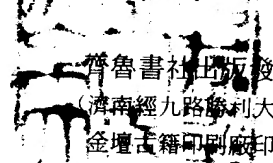 齊魯書社出版發
（濟南經九路勝利大
金壇古籍印刷廠印